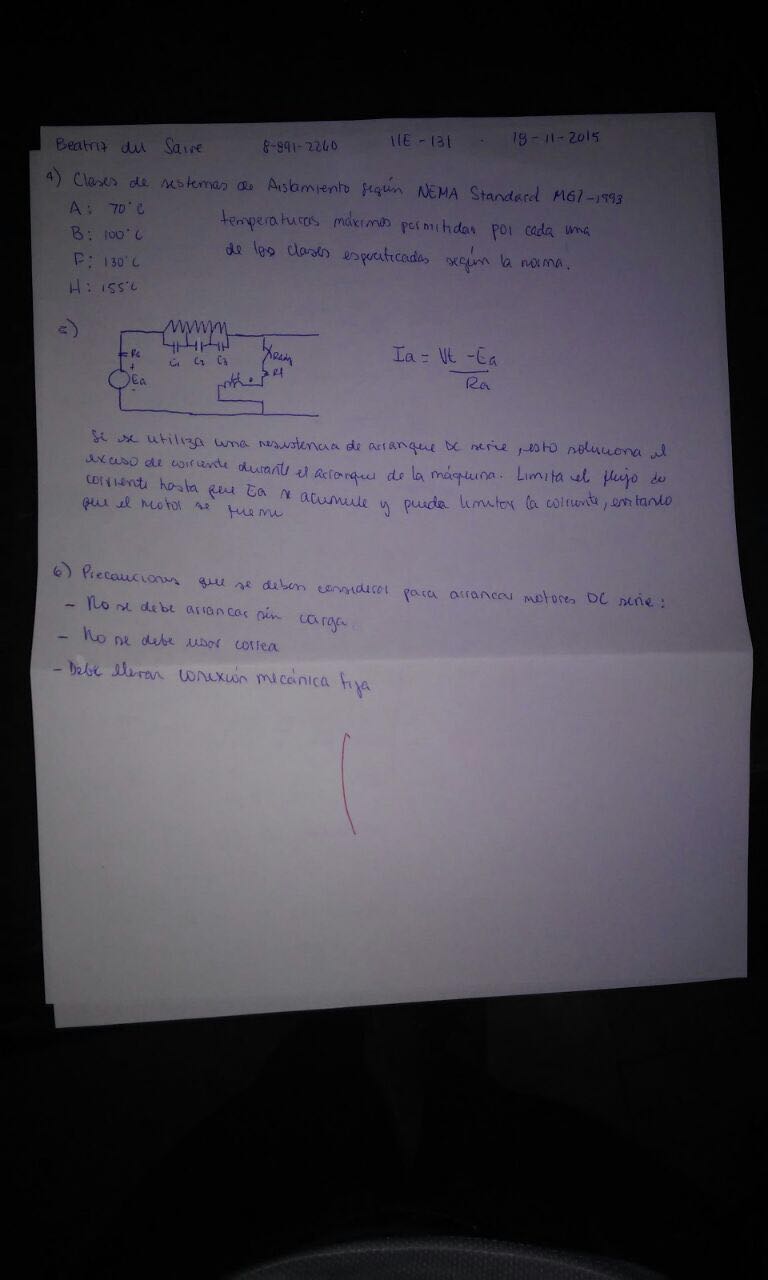 Beatriz du Saire 8-891-2260 11E-131 18-11-2015
4) Clases de sistemas de Aislamiento según NEMA Standard MG1-1993
A: 70°C temperaturas máximas permitidas por cada una
B: 100°C de las clases especificadas según la norma.
F: 130°C
H: 155°C
5)
C1 C2 C3
Ra Radj
Ea Rf
Ia = Vt - Ea
Ra
Si se utiliza una resistencia de arranque DC serie, esto soluciona el
exceso de corriente durante el arranque de la máquina. Limita el flujo de
corriente hasta que Ea se acumule y pueda limitar la corriente, evitando
que el motor se queme
6) Precauciones que se deben considerar para arrancar motores DC serie:
- No se debe arrancar sin carga.
- No se debe usar correa
- Debe llevar conexión mecánica fija